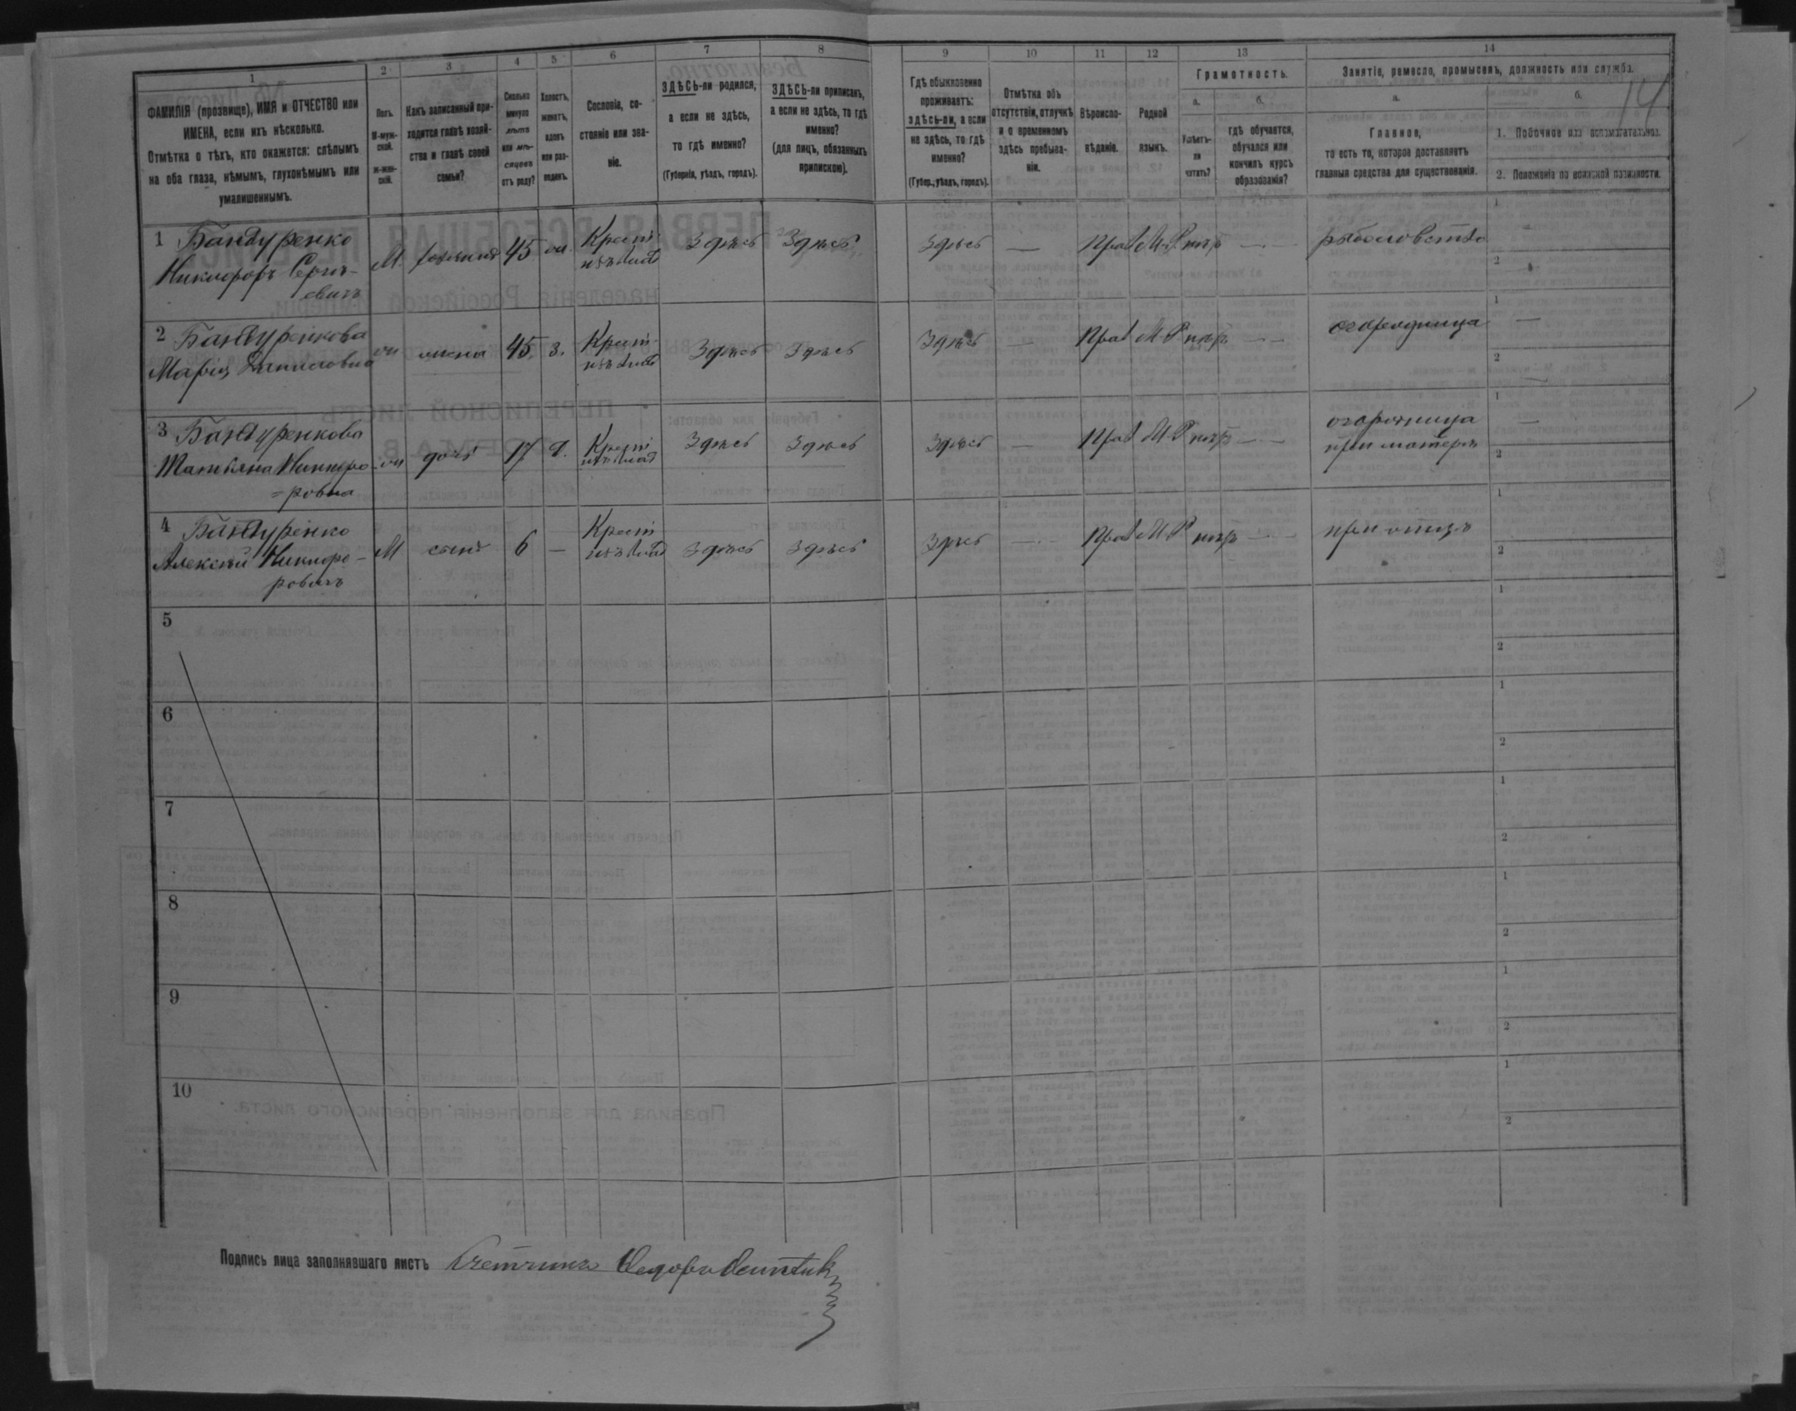 1 2 3 4 5 6 7 8 9 10 11 12 13 14
ФАМИЛІЯ (прозвище), ИМЯ и ОТЧЕСТВО или
ИМЕНА, если ихъ нѣсколько.
Отмѣтка о тѣхъ, кто окажется: слѣпымъ
на оба глаза, нѣмымъ, глухонѣмымъ или
умалишеннымъ.
Полъ.
М-муж-
ской.
Ж-жен-
скій.
Какъ записанный при-
ходится главѣ хозяй-
ства и главѣ своей
семьи?
Сколько
минуло
лѣтъ
или мѣ-
сяцевъ
отъ роду?
Холостъ,
женатъ,
вдовъ
или раз-
веденъ.
Сословіе, со-
стояніе или зва-
ніе.
ЗДѢСЬ-ли родился,
а если не здѣсь,
то гдѣ именно?
(Губернія, уѣздъ, городъ).
ЗДѢСЬ-ли приписанъ,
а если не здѣсь, то гдѣ
именно?
(для лицъ, обязанныхъ
припискою).
Гдѣ обыкновенно
проживаетъ:
здѣсь-ли, а если
не здѣсь, то гдѣ
именно?
(Губер., уѣздъ, городъ).
Отмѣтка объ
отсутствіи, отлучкѣ
и о временномъ
здѣсь пребыва-
ніи.
Вѣроиспо-
вѣданіе.
Родной
языкъ.
Грамотность.
а. б.
Умѣетъ-
ли
читать?
гдѣ обучается,
обучался или
кончилъ курсъ
образованія?
Занятіе, ремесло, промыселъ, должность или служба.
а. б.
Главное,
то есть то, которое доставляетъ
главныя средства для существованія.
1. Побочное или вспомогательное.
2. Положеніе по воинской повинности.
14
1 Бандуренко
Никифоръ Серги-
евичъ
М хозяинъ 45 Здѣсь Здѣсь Здѣсь — Прав М-Р негр — рыболовство
1
2
2 Бандуренкова
Марія
жена 45 З. Здѣсь Здѣсь Здѣсь — Прав М-Р негр — огородница
1 —
2 —
3 Бандуренкова
Татьяна Никифо
=ровна
дочь 17 д. Здѣсь Здѣсь Здѣсь — Прав М-Р негр — огородница
при матери
1 —
2
4 Бандуренко
Алексѣй Никифо-
ровичъ
М сынъ 6 — Здѣсь Здѣсь Здѣсь — Прав М-Р негр — при отцѣ
1
2
5
1
2
6
1
2
7
1
2
8
1
2
9
1
2
10
1
2
Подпись лица заполнявшаго листъ Счетчикъ